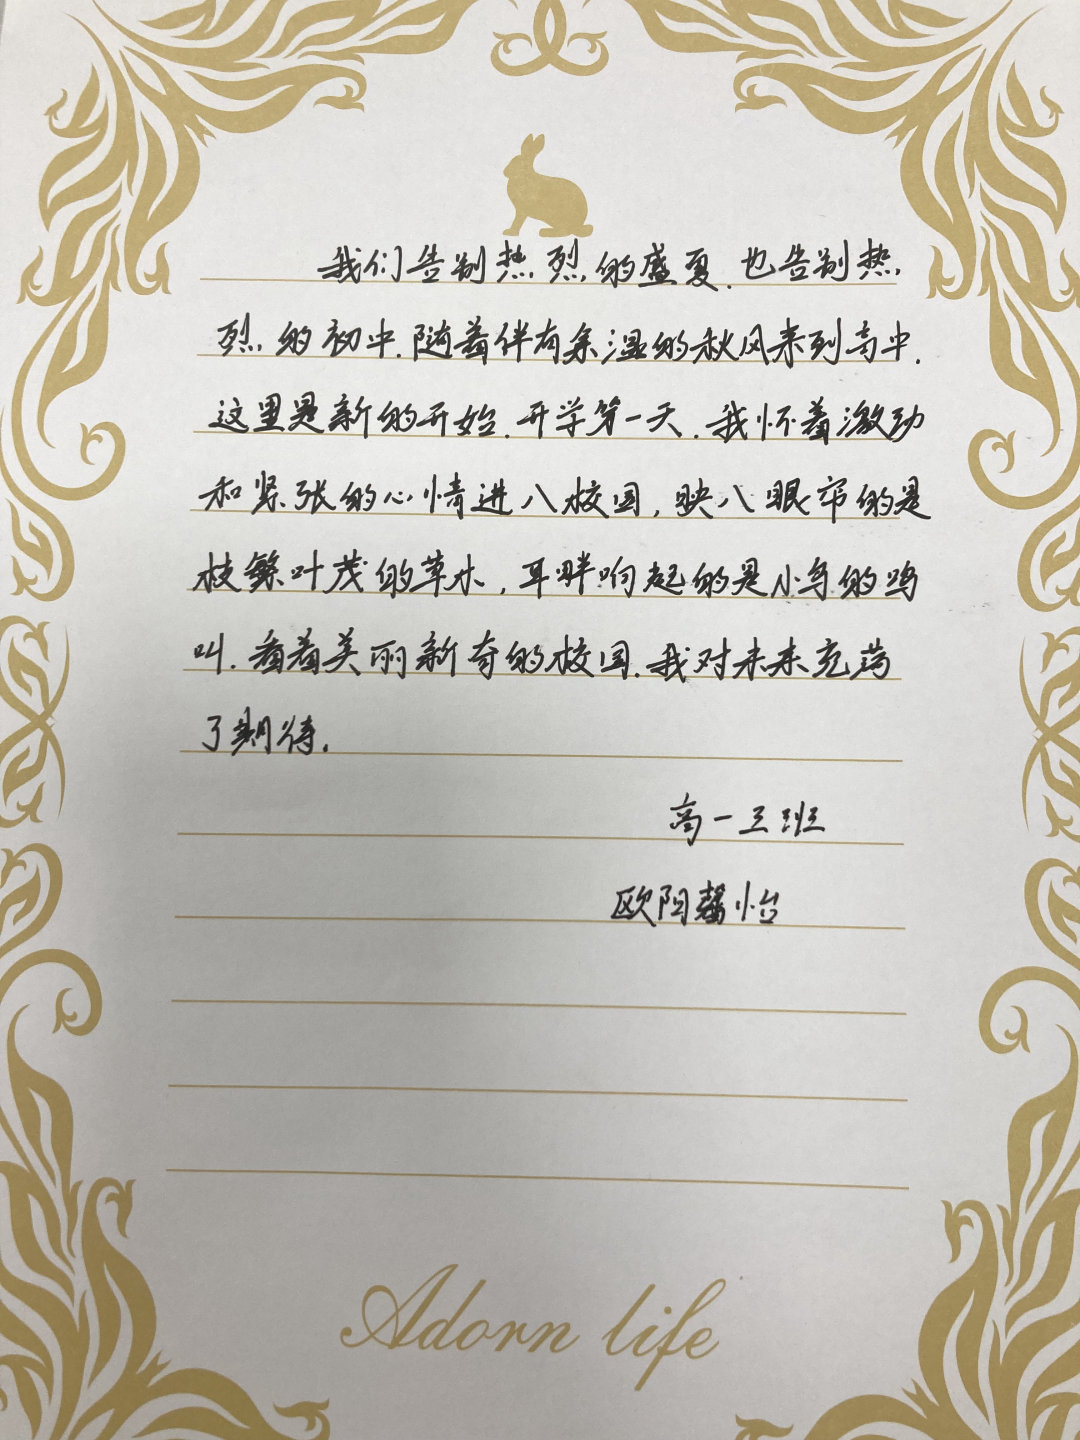 我们告别热烈的盛夏,也告别热
烈的初中,随着伴有余温的秋风来到高中,
这里是新的开始,开学第一天,我怀着激动
和紧张的心情进入校园,映入眼帘的是
枝繁叶茂的草木,耳畔响起的是小鸟的鸣
叫,看着美丽新奇的校园,我对未来充满
了期待.
高一三班
欧阳馨怡
Adorn life